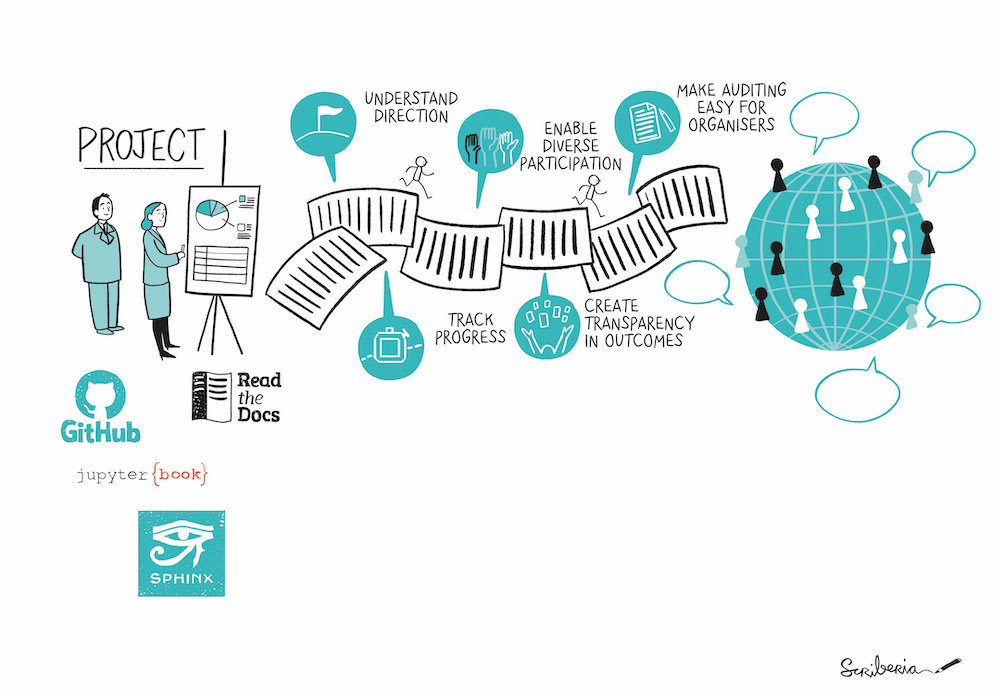 PROJECT
UNDERSTAND
DIRECTION
ENABLE
DIVERSE
PARTICIPATION
MAKE AUDITING
EASY FOR
ORGANISERS
TRACK
PROGRESS
CREATE
TRANSPARENCY
IN OUTCOMES
GitHub
Read
the
Docs
jupyter{book}
SPHINX
Scriberia